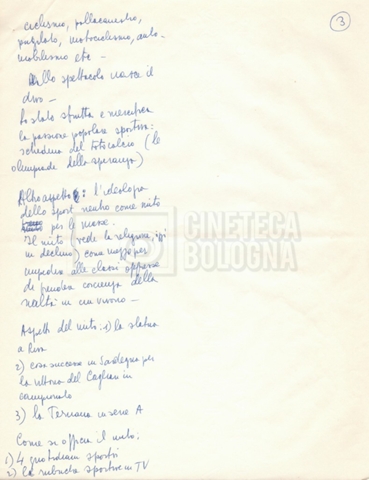 3
ciclismo, pallacanestro,
pugilato, motociclismo, auto-
mobilismo etc -
Dallo spettacolo nasce il
divo -
Lo stato sfrutta e mercifica
la passione popolare sportiva:
schedina del totocalcio (le
olimpiadi della speranza)
Altro aspetto: l'ideologia
dello sport neutro come mito
per le masse.
Il mito (vedi la religione, oggi
in declino) come mezzo per
impedire alle classi oppresse
di prendere coscienza della
realtà in cui vivono -
CINETECA
BOLOGNA
Aspetti del mito: 1) la statua
a Riva
2) cosa successe in Sardegna per
la vittoria del Cagliari in
campionato
3) la Ternana in serie A
Come si officia il mito:
1) 4 quotidiani sportivi
2) le rubriche sportive in TV